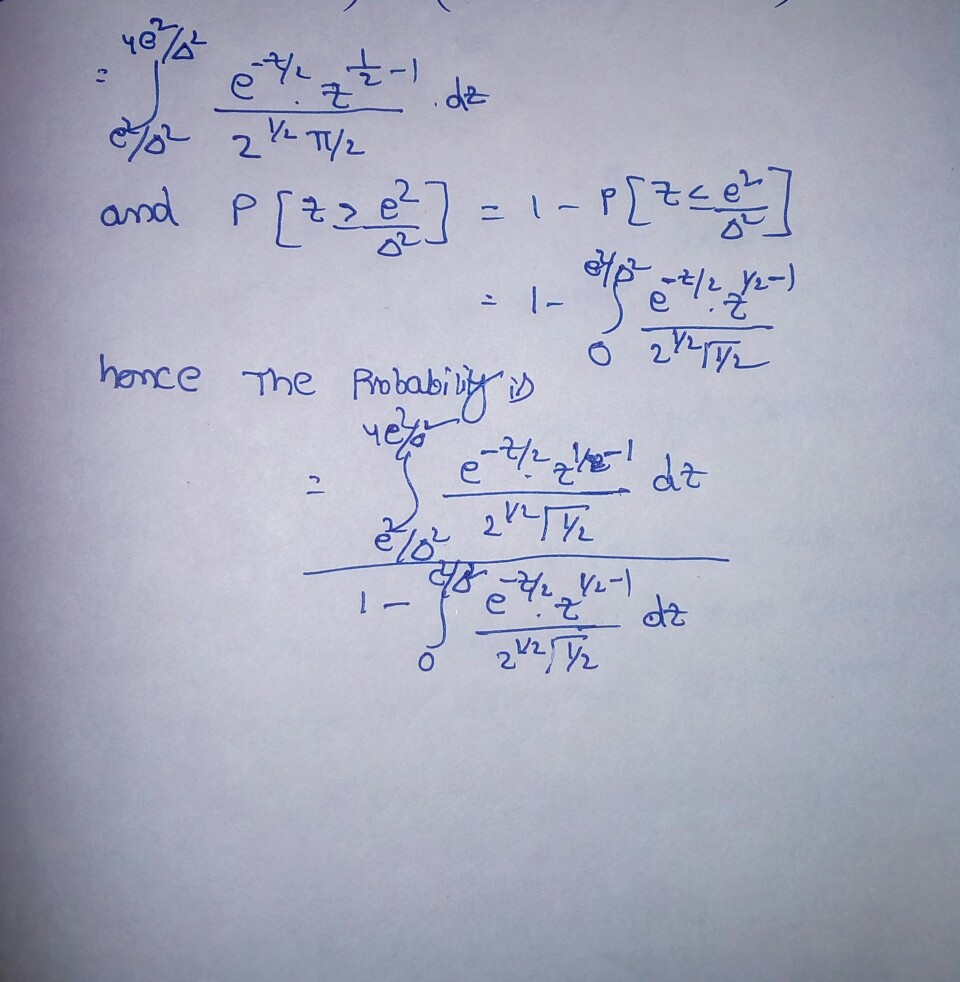 = ∫_{e²/Δ²}^{4e²/Δ²} \frac{e^{-z/2} . z^{\frac{1}{2}-1}}{2^{1/2} π/2} . dz
and P[z ≥ \frac{e²}{Δ²}] = 1 - P[z ≤ \frac{e²}{Δ²}]
= 1 - ∫_{0}^{e²/Δ²} \frac{e^{-z/2} . z^{1/2-1}}{2^{1/2} Γ1/2}
hence The Probability is
= \frac{∫_{e²/Δ²}^{4e²/Δ²} \frac{e^{-z/2} . z^{1/2-1}}{2^{1/2} Γ1/2} dz}{1 - ∫_{0}^{e²/Δ²} \frac{e^{-z/2} . z^{1/2-1}}{2^{1/2} Γ1/2} dz}